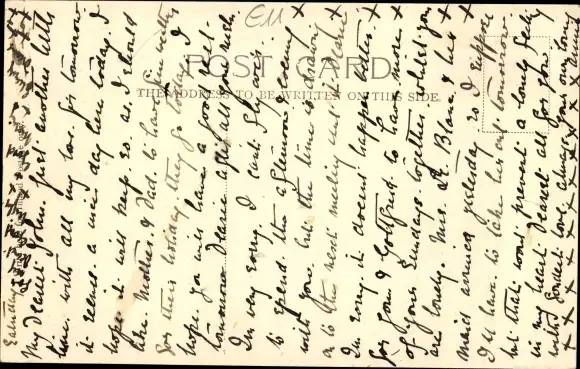 EM
POST CARD
THE ADDRESS TO BE WRITTEN ON THIS SIDE.
Saturday
My Dearest John. Just another little
line with all my love for tomorrow
it seems a nice day here today. I
hope it will keep so as I should
like Mother & Dad to have fine with
for their holiday, they go today. I
hope you will have a good rest
tomorrow Dearie after all your rush.
I'm very sorry I can't fly across
to spend the afternoon & evening
with you but the time is drawing
on to the next meeting isn't it Dearie
I'm sorry it doesn't happen better
for you & Gottfried to have more
of your Sundays together I bet you
are lonely. Mrs. Le Blanc & her
maid arrived yesterday so I suppose
I'll have to take her out tomorrow
but that won't prevent a lonely feeling
in my heart Dearest all for you
with fondest love always your loving
x x x x x x x x